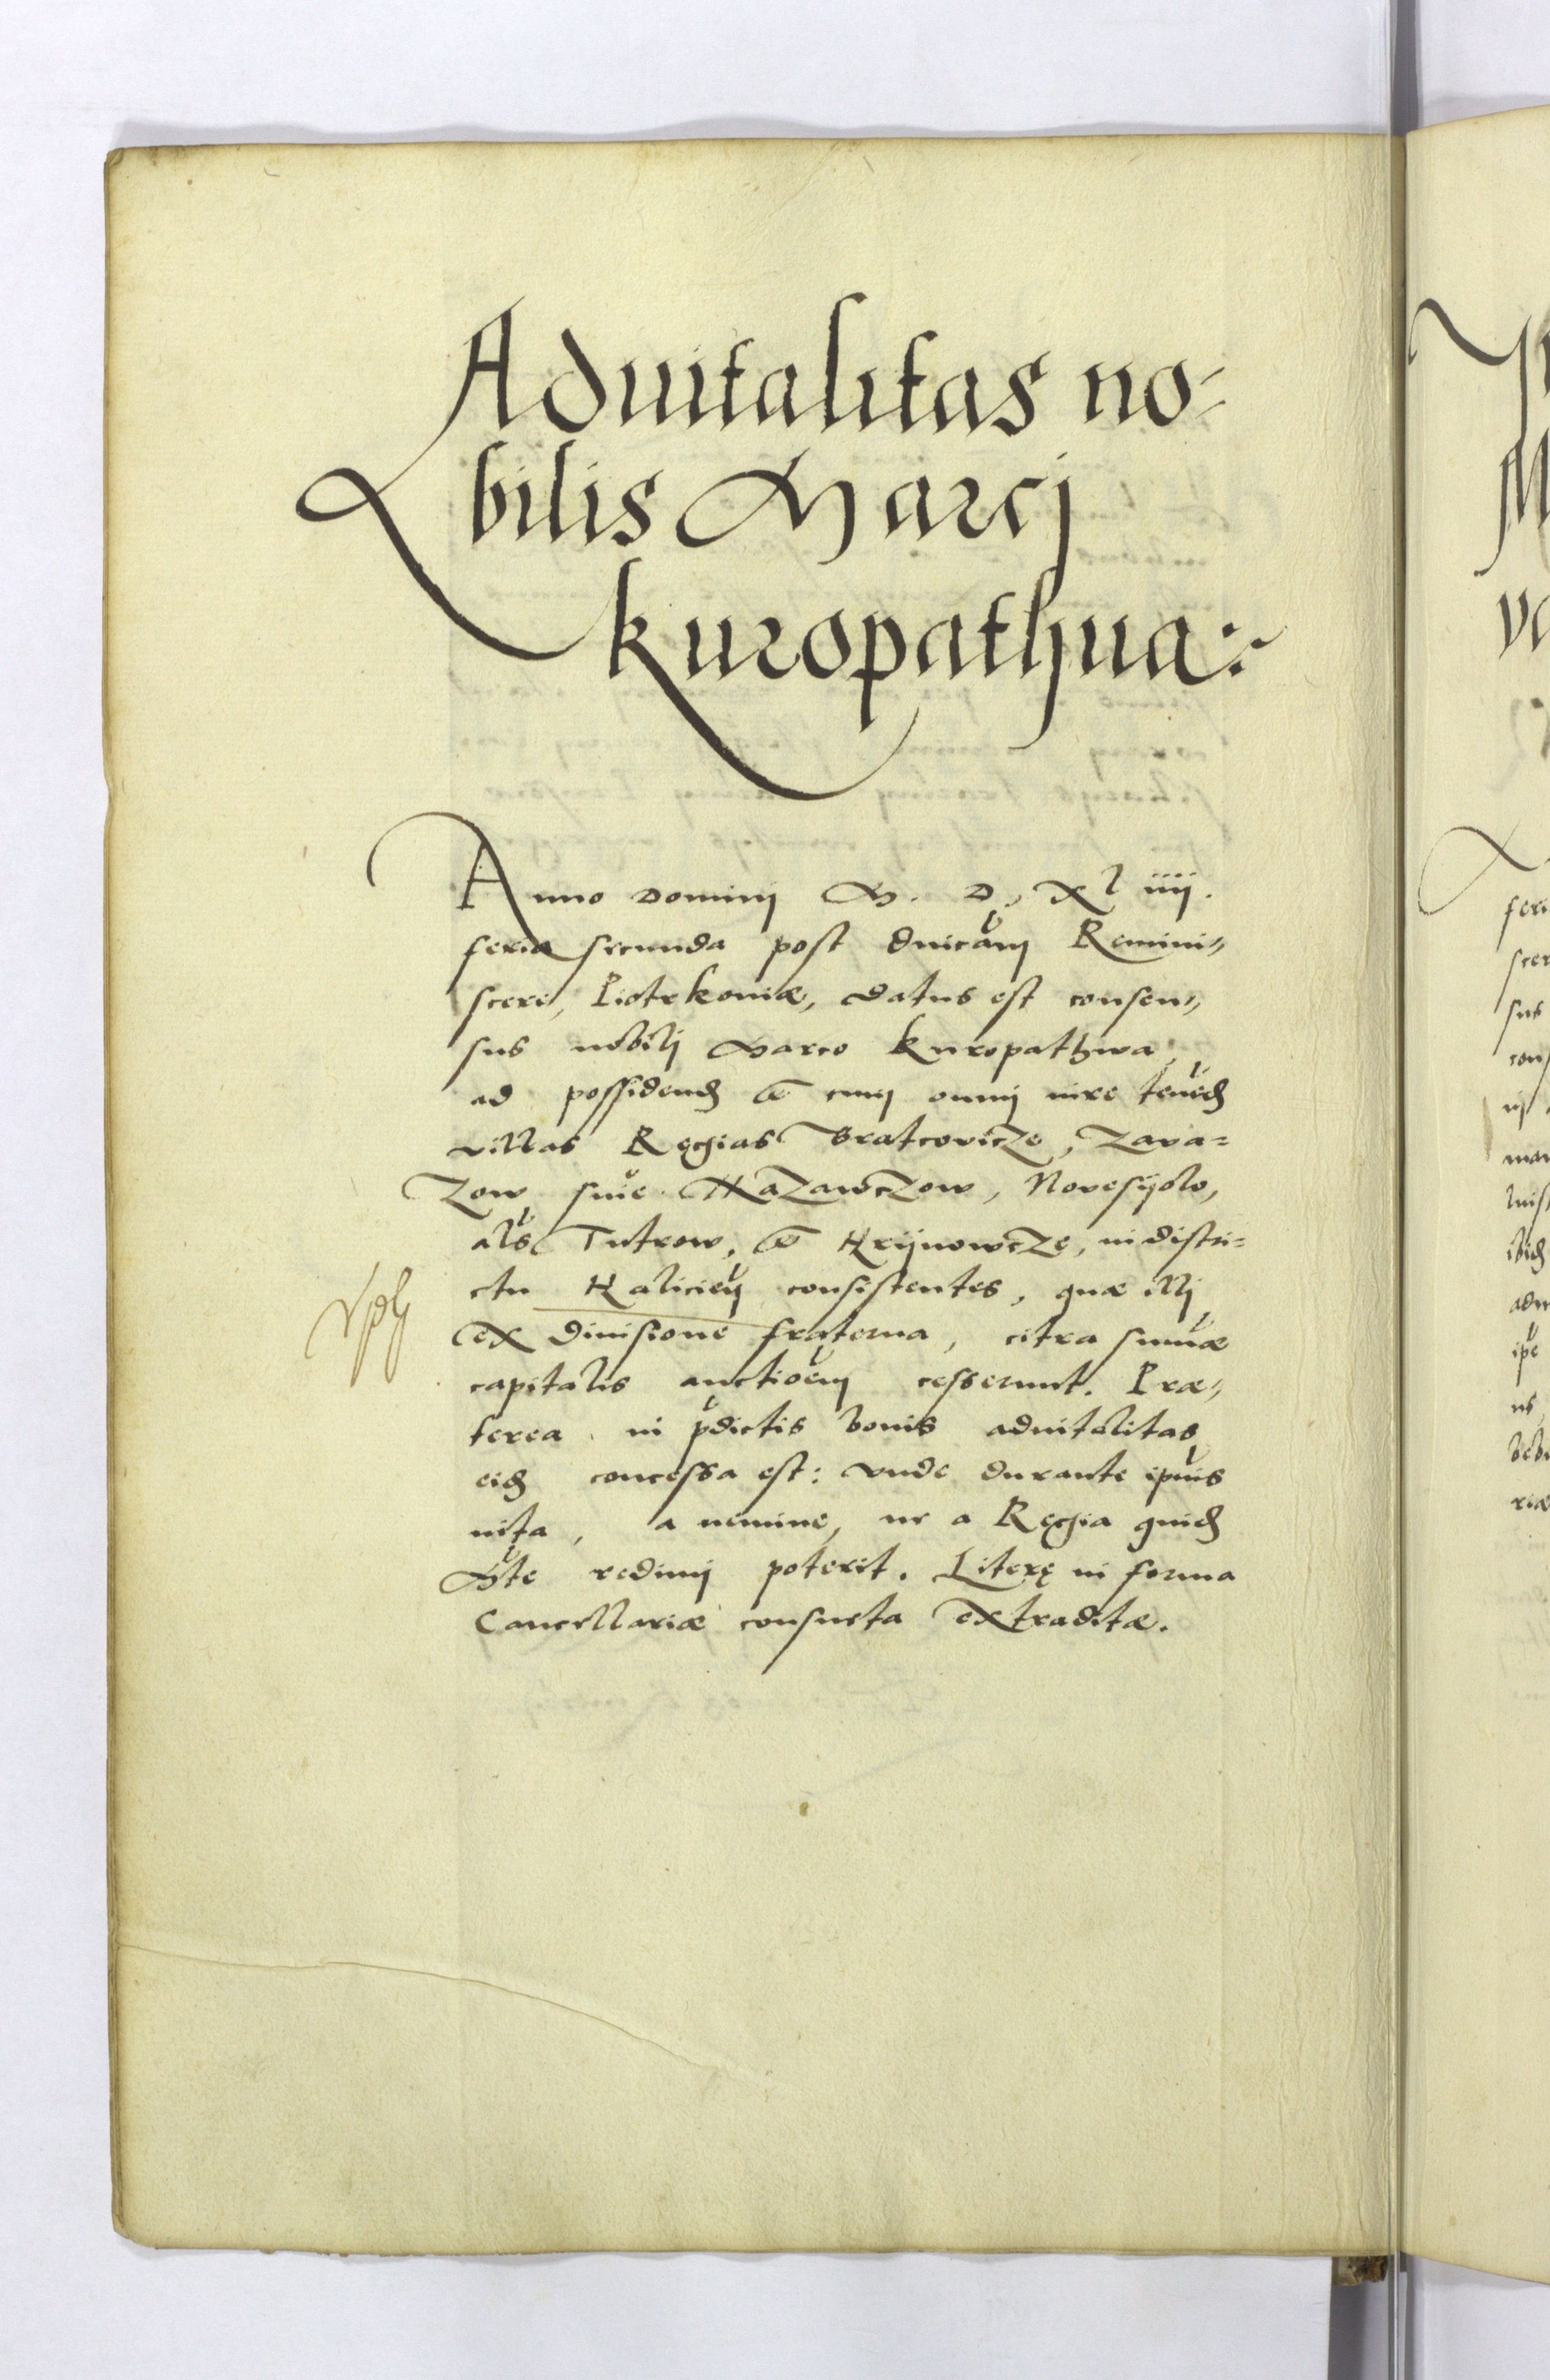 Aduitalitas no-
bilis Marcj
Kuropathua:
Anno Dominj M. D. XL iiij.
feria secunda post dnicam Remini„
scere, Piotrkoniæ, datus est consen„
sus nobilj Marco Kuropathwa,
ad possidend et cum omnj iure tenend
villas Regias Bratcovicze, Zava-
zow, siue Kazawczow, Novesyolo,
als Tutrow, et Hrijnowcze, in distri-
ctu Halicien consistentes, quæ illj
ex diuisione fraterna, citra sumæ
capitalis auctioem cesserunt. Præ„
terea in pdictis bonis aduitalitas
eid concessa est: vnde durante ipius
uita, a nemine, ne a Regia quid
Mte redimj poterit. Literę in forma
Cancellariæ consueta extraditæ.